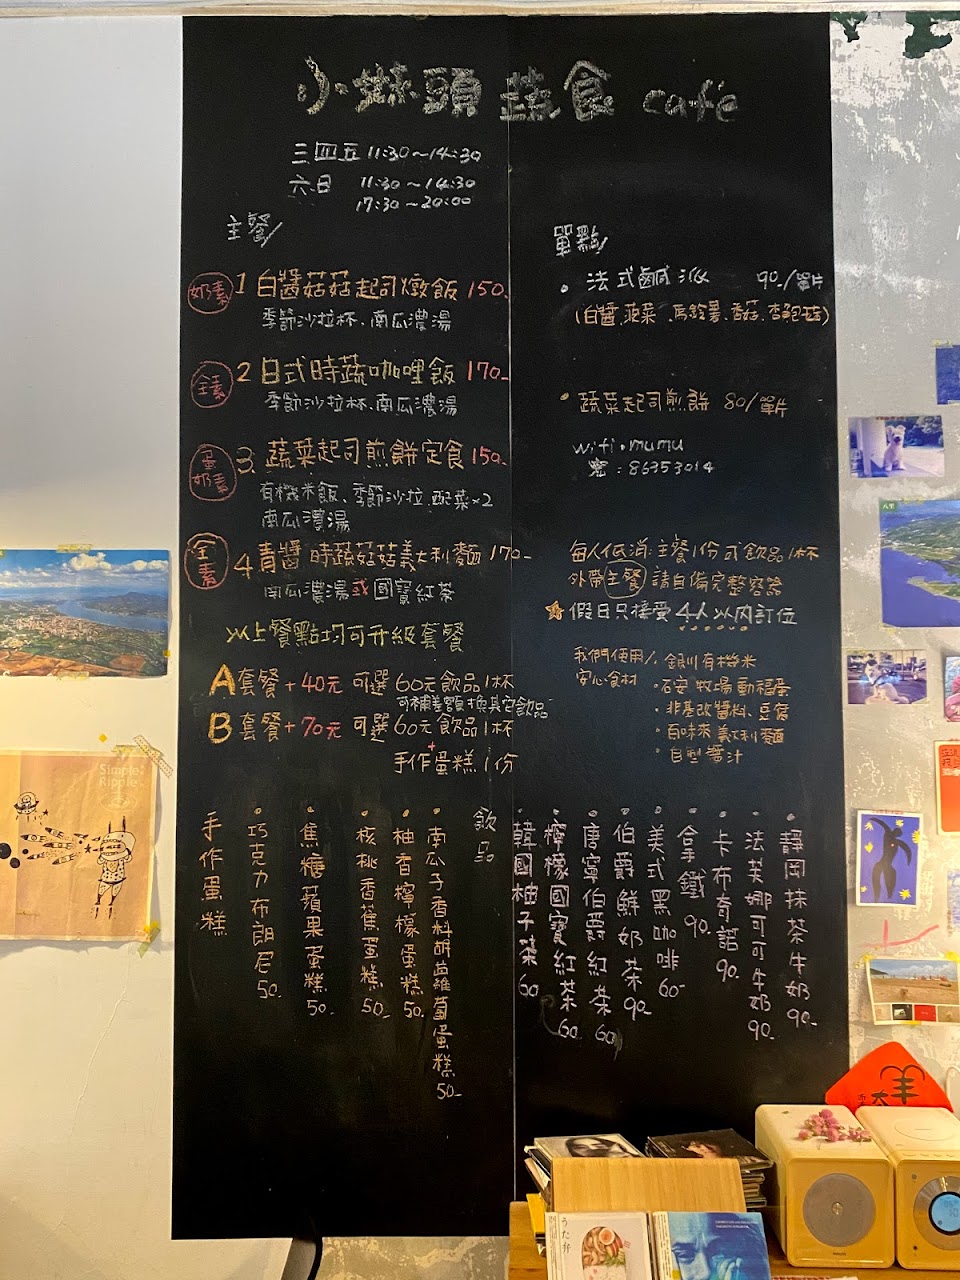 小㵢頭蔬食 café
三四五 11:30～14:30
六日 11:30～14:30
17:30～20:00
主餐/
奶素 1 白醬菇菇起司燉飯 150-
季節沙拉杯、南瓜濃湯
全素 2 日式時蔬咖哩飯 170-
季節沙拉杯、南瓜濃湯
蛋奶素 3. 蔬菜起司煎餅定食 150-
有機米飯、季節沙拉、配菜×2
南瓜濃湯
全素 4. 青醬時蔬菇菇義大利麵 170-
南瓜濃湯或國寶紅茶
以上餐點均可升級套餐
A 套餐+40元 可選60元飲品1杯
可補差額換其它飲品
B 套餐+70元 可選60元飲品1杯
+
手作蛋糕1份
單點/
• 法式鹹派 90/單片
(白醬.菠菜.馬鈴薯.香菇.杏鮑菇)
• 蔬菜起司煎餅 80/單片
wifi • mumu
密：86353014
每人低消:主餐1份或飲品1杯
外帶主餐請自備完整容器
假日只接受4人以內訂位
我們使用/
安心食材
• 銀川有機米
• 石安牧場動福蛋
• 非基改醬料、豆腐
• 百味來義大利麵
• 自製醬汁
手作蛋糕
• 巧克力布朗尼 50-
• 焦糖蘋果蛋糕 50-
• 核桃香蕉蛋糕 50-
• 柚香檸檬蛋糕 50-
• 南瓜子香料胡蘿蔔蛋糕 50-
飲品
• 韓國柚子茶 60
• 檸檬國寶紅茶 60-
• 唐寧伯爵紅茶 60
• 伯爵鮮奶茶 90-
• 美式黑咖啡 60-
• 拿鐵 90-
• 卡布奇諾 90-
• 法芙娜可可牛奶 90-
• 靜岡抹茶牛奶 90-
Simple
Ripple
八里
うた弁